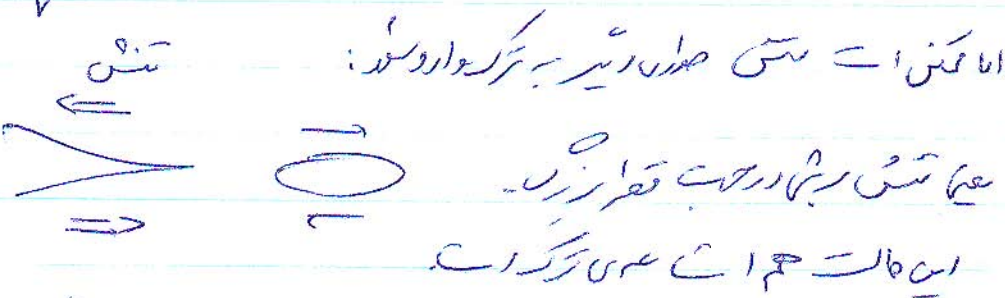 اما ممکن است تنش طوری دیگر به ترک وارد شود:
تنش
یعنی تنش برشی در جهت قطر بزرگ.
این حالت هم اشاعه‌ی ترک است.